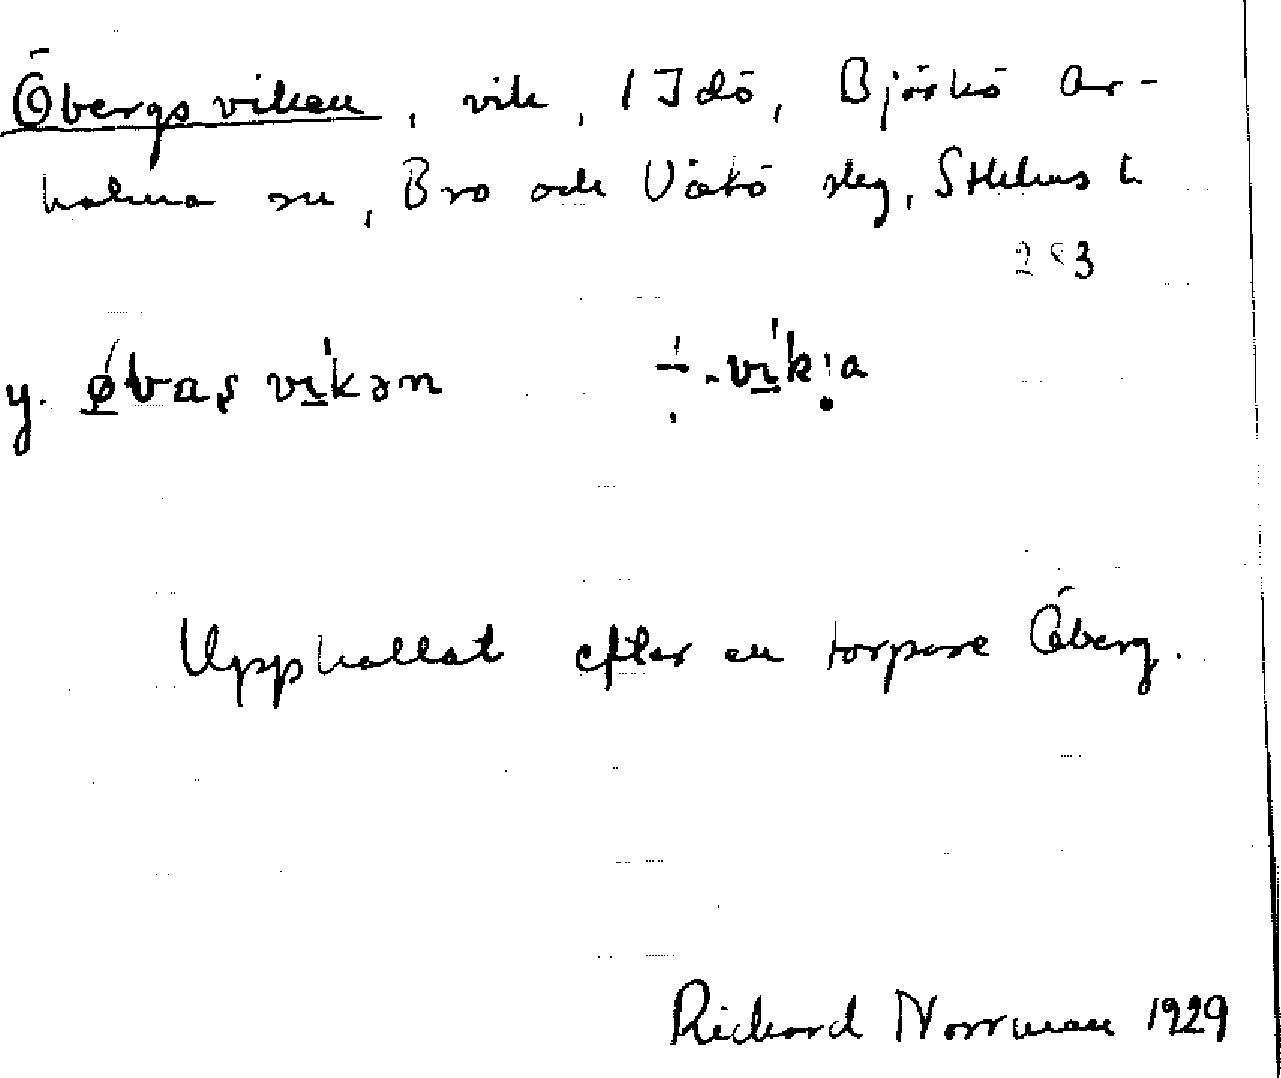 Öbergsviken, vik, i Idö, Björkö Ar-
holma sn, Bro och Vätö slg, Sthlms l.
y. øbaṣ vikən ÷-vik:a
Uppkallat efter en torpare Öberg.
Rickard Norrman 1929